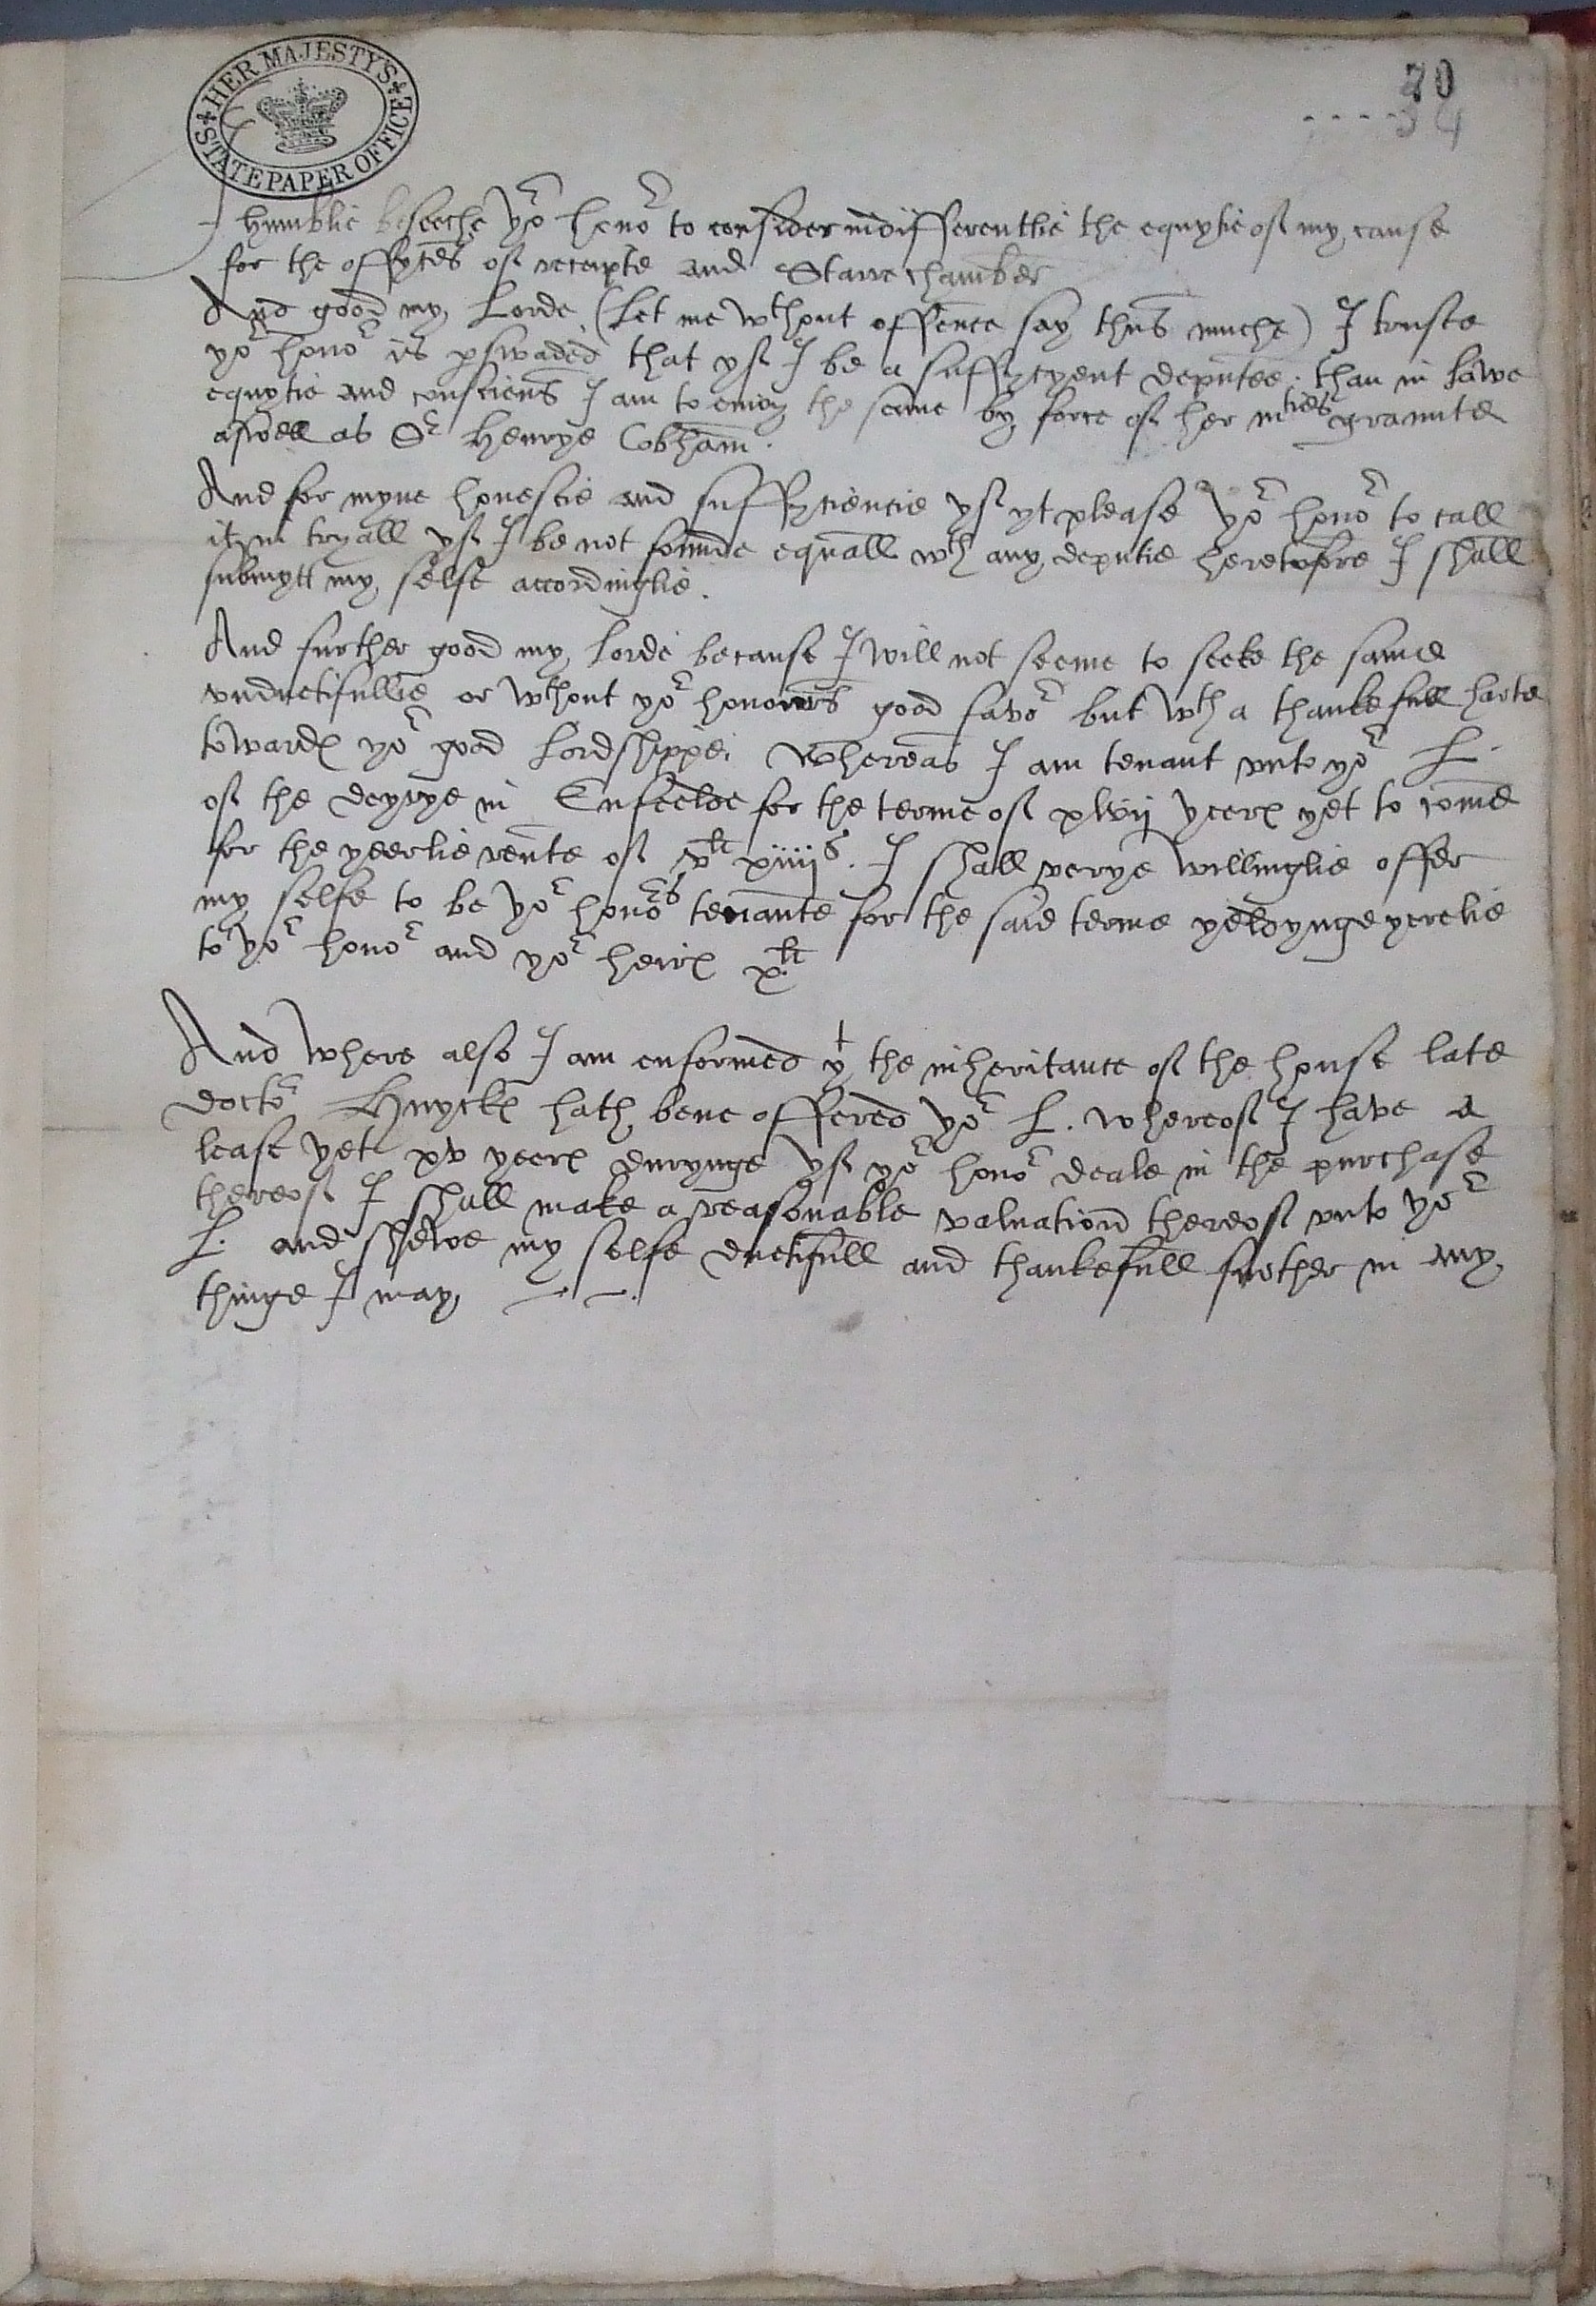 HER MAJESTY'S STATE PAPER OFFICE
70
54
I humblie beseeche yor honor to consider indifferentlie the equytie of my cause
for the offyces of receipte and Starre chamber
And good my Lorde (Let me wthout offence say thus muche) I truste
yor honor is pswaded that yf I be a suffycyent deputee . than in Lawe
equytie and consciens I am to enioy the same by force of her maties graunte
aswell as Sr Henrye Cobham .
And for myne honestie and suffycientie yf yt please yor honor to call
it in tryall yf I be not founde equall wth any deputie heretofore I shall
submytt my selfe accordinglie .
And further good my Lorde because I will not seeme to seeke the same
vnduetifullie or wthout yor honours good favor but wth a thankefull harte
towardes yor good Lordshippe . Whereas I am tenant vnto yor L.
of the deyrye in Enfeelde for the terme of xlvij yeeres yet to come
for the yeerlie rente of vli xiiijs . I shall verye willinglie offer
my selfe to be yor honors tenante for the said terme yeldynge yerelie
to yor honor and yor heires xli
And where also I am enformed yt the inheritance of the house late
doctor Huyckes hath bene offered yor L. whereof I have a
lease yet xv yeeres durynge yf yor honor deale in the purchase
thereof I shall make a reasonable valuation thereof vnto yor
L. and shewe my selfe duetifull and thankefull further in any
thinge I may .